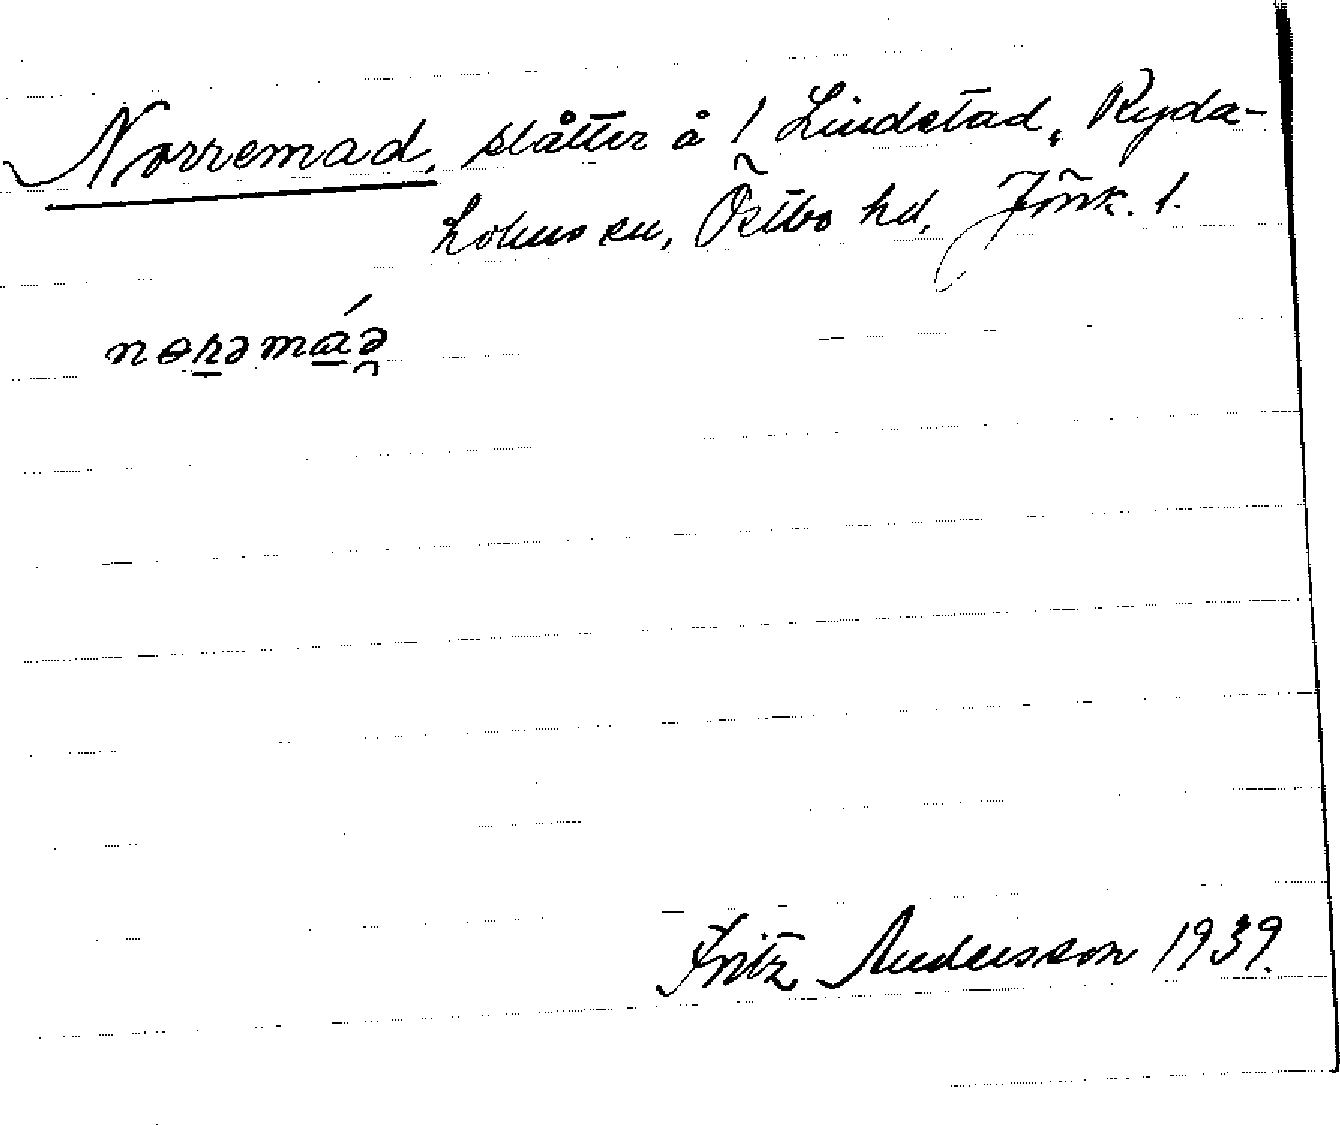 Norremad, slåtter å / Lindstad, Ryda-
holms sn, Östbo hd, Jönk. l.
nɵrəmáə̯
Fritz Andersson 1939.